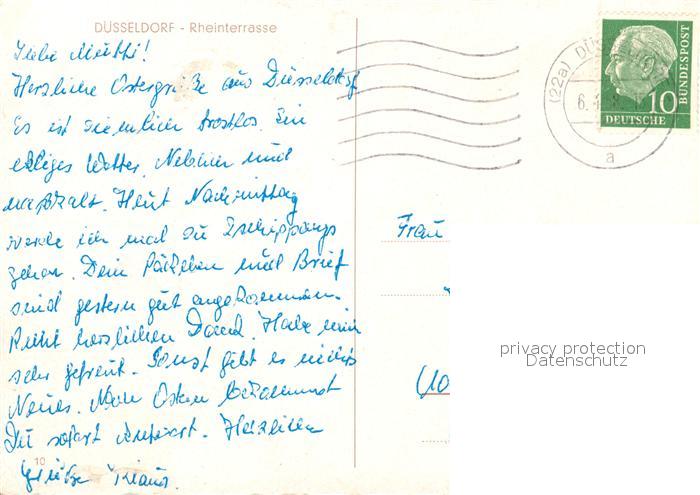 DÜSSELDORF - Rheinterrasse
Liebe Mutti!
Herzliche Ostergrüße aus Düsseldorf
Es ist ziemlich trostlos. Ein
ekliges Wetter. Nebelig und
naßkalt. Heut Nachmittag
werde ich mal zu Zschippangs
gehen. Dein Päckchen und Brief
sind gestern gut angekommen.
Recht herzlichen Dank. Habe mich
sehr gefreut. Sonst gibt es nichts
Neues. Nach Ostern bekommst
Du sofort Antwort. Herzliche
Grüße Klaus.
10
(22a) DÜSSELDORF
6.
a
10
DEUTSCHE
BUNDESPOST
Frau
privacy protection
Datenschutz